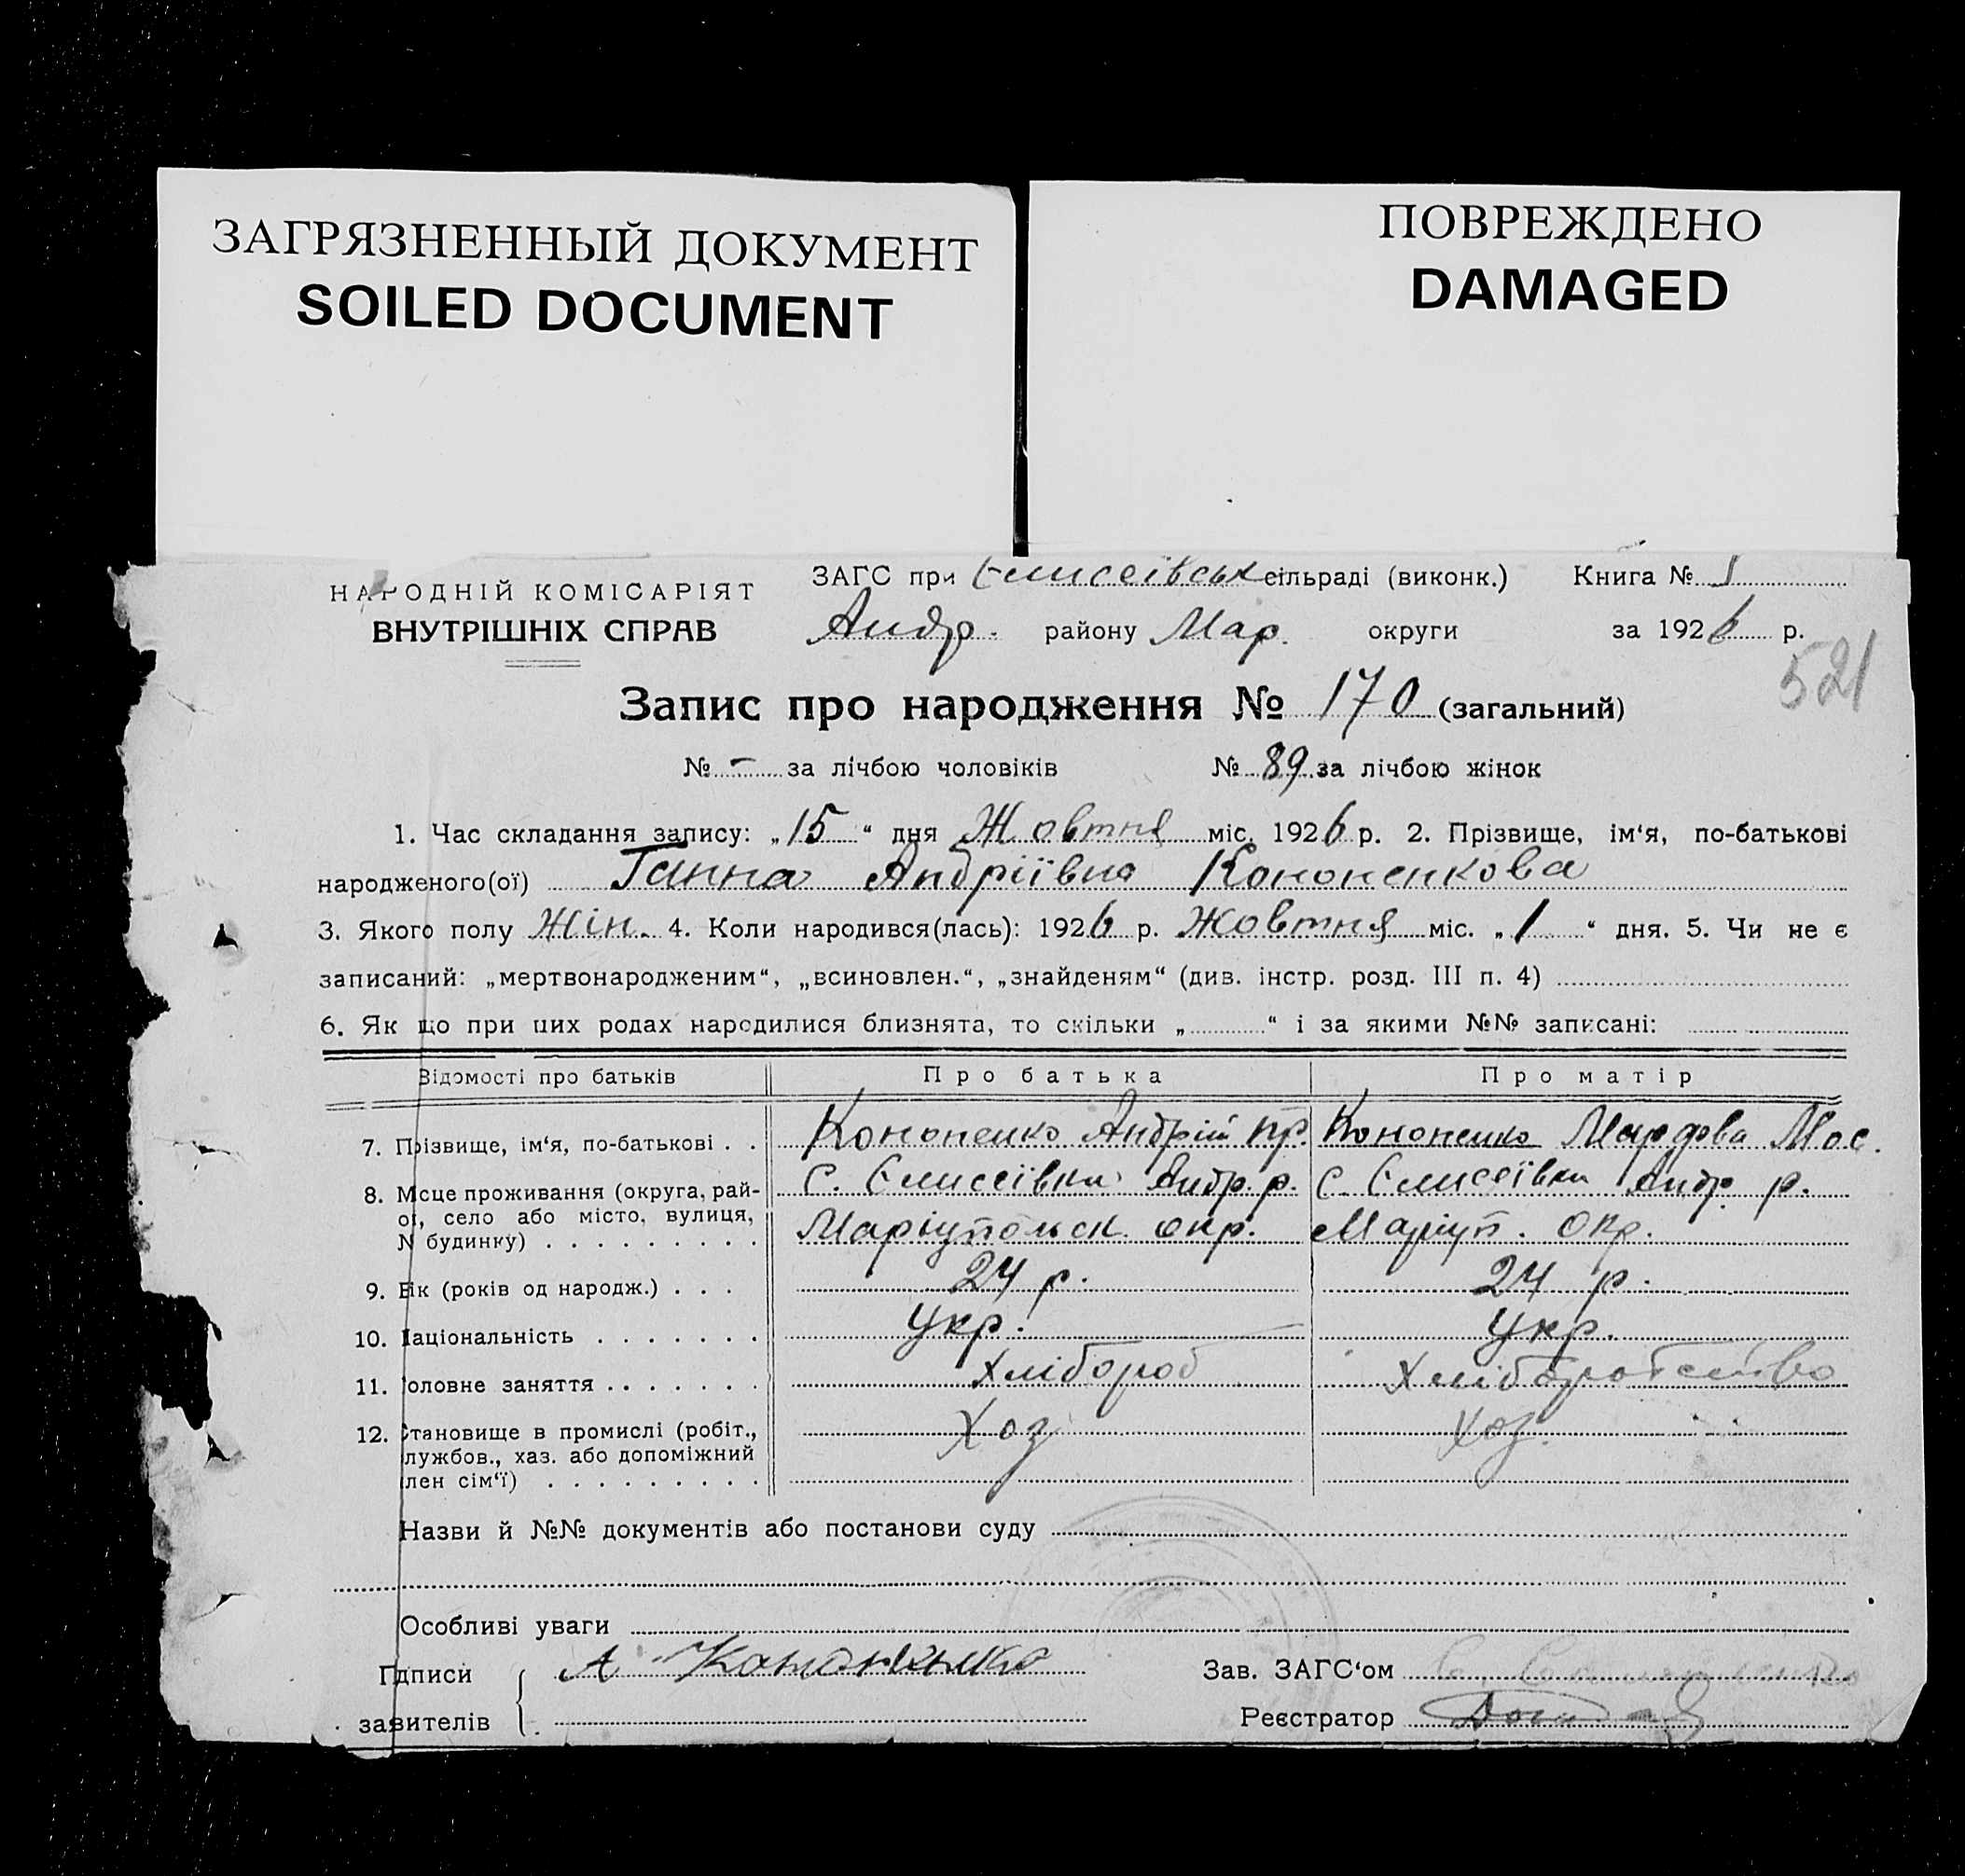 ЗАГРЯЗНЕННЫЙ ДОКУМЕНТ
SOILED DOCUMENT
ПОВРЕЖДЕНО
DAMAGED
НАРОДНІЙ КОМІСАРІЯТ
ВНУТРІШНІХ СПРАВ
ЗАГС при Єлисеївськ сільраді (виконк.) Книга № 1
Андр. району Мар. округи за 1926 р.
521
Запис про народження № 170 (загальний)
№ - за лічбою чоловіків № 89 за лічбою жінок
1. Час складання запису: „15“ дня Жовтня міс. 1926 р. 2. Прізвище, ім‘я, по-батькові
народженого(ої) Ганна Андріївна Кононенкова
3. Якого полу жін. 4. Коли народився(лась): 1926 р. Жовтня міс. „1“ дня. 5. Чи не є
записаний: „мертвонародженим“, „всиновлен.“, „знайденям“ (див. інстр. розд. III п. 4)
6. Як що при цих родах народилися близнята, то скільки „ “ і за якими №№ записані:
Відомості про батьків Про батька Про матір
7. Прізвище, ім‘я, по-батькові . . Кононенко Андрій Пр. Кононенко Мос.
8. Місце проживання (округа, рай- с. Єлисеївка Андр. р. с. Єлисеївка Андр. р.
он, село або місто, вулиця, Маріупольск. окр. Маріуп. окр.
№ будинку)
9. Вік (років од народж.) . . . 24 р. 24 р.
10. Національність Укр. Укр.
11. Головне заняття Хлібороб Хліборобство
12. Становище в промислі (робіт., Хоз Хоз.
службов., хаз. або допоміжний
член сім‘ї)
Назви й №№ документів або постанови суду
Особливі уваги
Підписи А Кононенко Зав. ЗАГС‘ом
заявителів Реєстратор